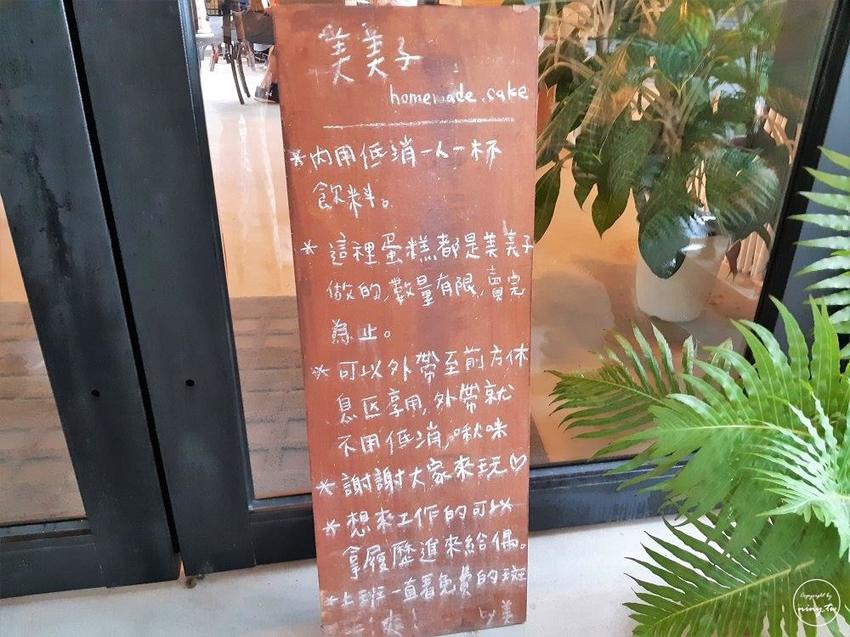 美美子
homemade.cake
*內用低消一人一杯
飲料。
* 這裡蛋糕都是美美子
做的,數量有限,賣完
為止。
* 可以外帶至前方休
息區享用,外帶就
不用低消,啾咪
* 謝謝大家來玩♡
* 想來工作的可以
拿履歷進來給偶。
*上班一直看免費的斑
以美
Copyright by
niny.tw